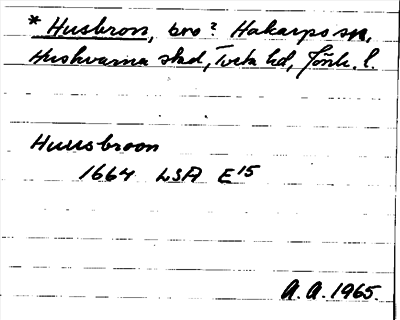 * Husbron, bro? Hakarps sn,
Huskvarna stad, Tveta hd, Jönk. l.
Huusbroon
1664 LSA E15
A. A. 1965.